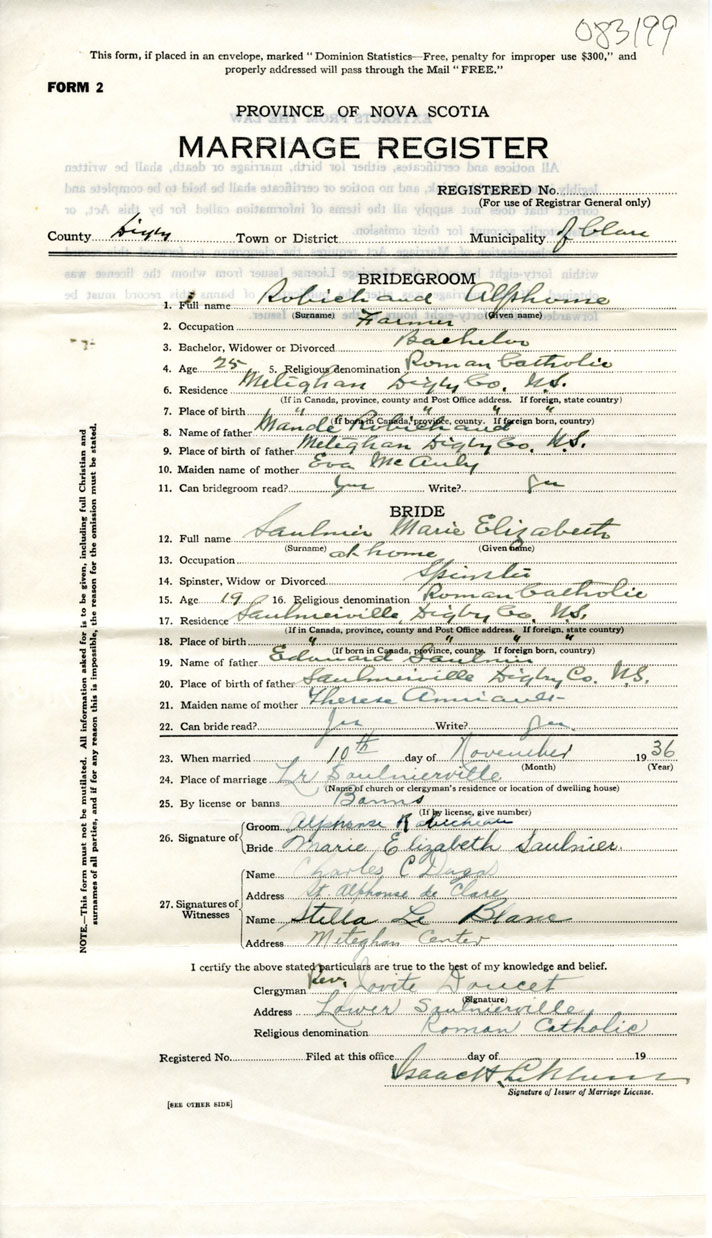 083199
This form, if placed in an envelope, marked "Dominion Statistics—Free, penalty for improper use $300," and
properly addressed will pass through the Mail "FREE."
FORM 2
PROVINCE OF NOVA SCOTIA
MARRIAGE REGISTER
REGISTERED No.
(For use of Registrar General only)
County Digby Town or District Municipality of Clare
BRIDEGROOM
1. Full name Robichaud Alphonse
(Surname) (Given name)
2. Occupation Farmer
3. Bachelor, Widower or Divorced Bachelor
4. Age 25 5. Religious denomination Roman Catholic
6. Residence Meteghan Digby Co. N.S.
(If in Canada, province, county and Post Office address. If foreign, state country)
7. Place of birth " " "
(If born in Canada, province, county. If foreign born, country)
8. Name of father Mande Robichaud
9. Place of birth of father Meteghan Digby Co. N.S.
10. Maiden name of mother Eva McAuly
11. Can bridegroom read? yes Write? yes
BRIDE
12. Full name Saulnier Marie Elizabeth
(Surname) (Given name)
13. Occupation at home
14. Spinster, Widow or Divorced Spinster
15. Age 19 16. Religious denomination Roman Catholic
17. Residence Saulnierville, Digby Co. N.S.
(If in Canada, province, county and Post Office address. If foreign, state country)
18. Place of birth " " " "
(If born in Canada, province, county. If foreign born, country)
19. Name of father Edouard Saulnier
20. Place of birth of father Saulnierville Digby Co. N.S.
21. Maiden name of mother Therese
22. Can bride read? yes Write? yes
23. When married 10th day of November 1936
(Month) (Year)
24. Place of marriage Lr Saulnierville
(Name of church or clergyman's residence or location of dwelling house)
25. By license or banns Banns
(If by license, give number)
26. Signature of Groom Alphonse Robicheau
Bride Marie Elizabeth Saulnier
27. Signatures of Witnesses
Name Charles C
Address St. Alphonse de Clare
Name Stella Le Blanc
Address Meteghan Center
I certify the above stated particulars are true to the best of my knowledge and belief.
Clergyman Rev. Jovite Doucet
(Signature)
Address Lower Saulnierville
Religious denomination Roman Catholic
Registered No. Filed at this office day of 19
Isaac H
Signature of Issuer of Marriage License.
[SEE OTHER SIDE]
NOTE.—This form must not be mutilated. All information asked for is to be given, including full Christian and
surnames of all parties, and if for any reason this is impossible, the reason for the omission must be stated.